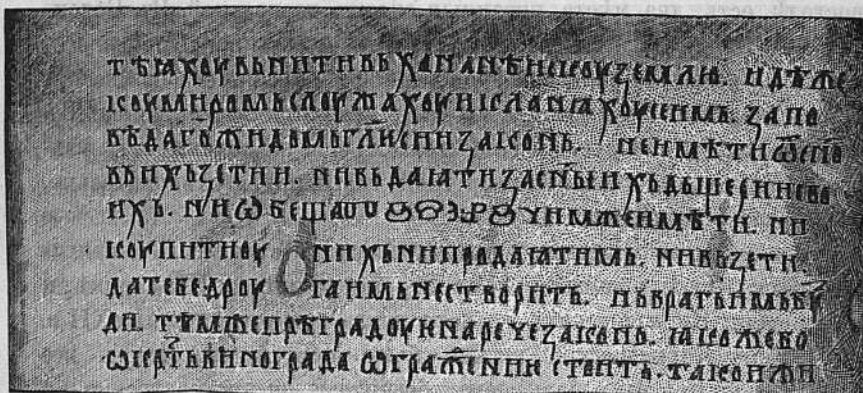 тѣꙗхоувьнитивь ханаанѣискоу ꙁемлю. идѣже
коумиромьслоужахоуикланꙗхоусеимь. ꙁапо
вѣдаг҃ьжидомогл҃исииꙁаконь. неимѣтиѿ
вьихьꙁетии. нивьдаꙗтиꙁасн҃ыихьдьщериисво
ихь. ниѡбеща имжеимѣти. ни
коупитиоу нихьнипродаꙗтимь. нивьꙁети.
датебедроу гаимьнестворить. нь
ди. тѣмжепрѣградоуинаречеꙁаконь. ꙗкожебо
винограда ѡграждениистоить. такоижи